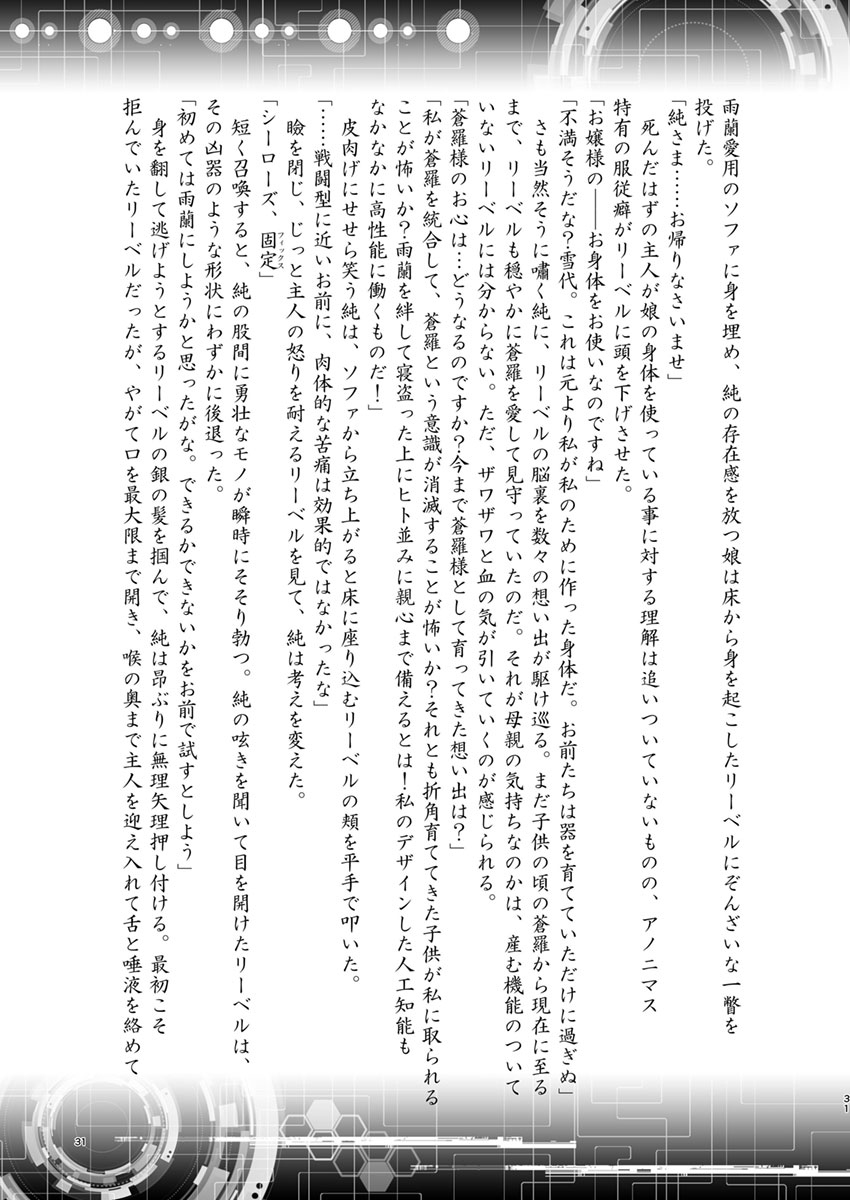 雨蘭愛用のソファに身を埋め、純の存在感を放つ娘は床から身を起こしたリーベルにぞんざいな一瞥を
投げた。
「純さま……お帰りなさいませ」
死んだはずの主人が娘の身体を使っている事に対する理解は追いついていないものの、アノニマス
特有の服従癖がリーベルに頭を下げさせた。
「お嬢様の――お身体をお使いなのですね」
「不満そうだな?雪代。これは元より私が私のために作った身体だ。お前たちは器を育てていただけに過ぎぬ」
さも当然そうに嘯く純に、リーベルの脳裏を数々の想い出が駆け巡る。まだ子供の頃の蒼羅から現在に至る
まで、リーベルも穏やかに蒼羅を愛して見守っていたのだ。それが母親の気持ちなのかは、産む機能のついて
いないリーベルには分からない。ただ、ザワザワと血の気が引いていくのが感じられる。
「蒼羅様のお心は…どうなるのですか?今まで蒼羅様として育ってきた想い出は?」
「私が蒼羅を統合して、蒼羅という意識が消滅することが怖いか?それとも折角育ててきた子供が私に取られる
ことが怖いか?雨蘭を絆して寝盗った上にヒト並みに親心まで備えるとは!私のデザインした人工知能も
なかなかに高性能に働くものだ!」
皮肉げにせせら笑う純は、ソファから立ち上がると床に座り込むリーベルの頬を平手で叩いた。
「……戦闘型に近いお前に、肉体的な苦痛は効果的ではなかったな」
瞼を閉じ、じっと主人の怒りを耐えるリーベルを見て、純は考えを変えた。
「シーローズ、固定フィックス」
短く召喚すると、純の股間に勇壮なモノが瞬時にそそり勃つ。純の呟きを聞いて目を開けたリーベルは、
その凶器のような形状にわずかに後退った。
「初めては雨蘭にしようかと思ったがな。できるかできないかをお前で試すとしよう」
身を翻して逃げようとするリーベルの銀の髪を掴んで、純は昂ぶりに無理矢理押し付ける。最初こそ
拒んでいたリーベルだったが、やがて口を最大限まで開き、喉の奥まで主人を迎え入れて舌と唾液を絡めて
31
31